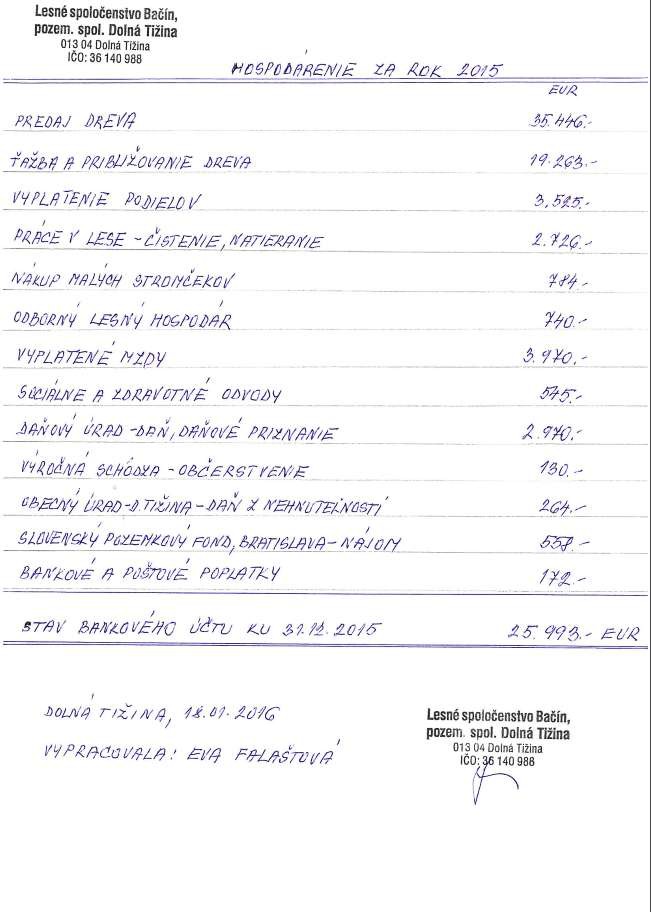 Lesné spoločenstvo Bačín,
pozem. spol. Dolná Tižina
013 04 Dolná Tižina
IČO: 36 140 988
HOSPODÁRENIE ZA ROK 2015
EUR
PREDAJ DREVA 35.446.-
ŤAŽBA A PRIBLIŽOVANIE DREVA 19.263.-
VYPLATENIE PODIELOV 3.525.-
PRÁCE V LESE - ČISTENIE, NATIERANIE 2.726.-
NÁKUP MALÝCH STROMČEKOV 784.-
ODBORNÝ LESNÝ HOSPODÁR 740.-
VYPLATENÉ MZDY 3.970.-
SOCIÁLNE A ZDRAVOTNÉ ODVODY 545.-
DAŇOVÝ ÚRAD - DAŇ, DAŇOVÉ PRIZNANIE 2.970.-
VÝROČNÁ SCHÔDZA - OBČERSTVENIE 130.-
OBECNÝ ÚRAD - D. TIŽINA - DAŇ Z NEHNUTEĽNOSTÍ 264.-
SLOVENSKÝ POZEMKOVÝ FOND, BRATISLAVA - NÁJOM 558.-
BANKOVÉ A POŠTOVÉ POPLATKY 172.-
STAV BANKOVÉHO ÚČTU KU 31.12.2015 25.993.- EUR
DOLNÁ TIŽINA, 18.01.2016
VYPRACOVALA: EVA FALAŠTOVÁ
Lesné spoločenstvo Bačín,
pozem. spol. Dolná Tižina
013 04 Dolná Tižina
IČO: 36 140 988